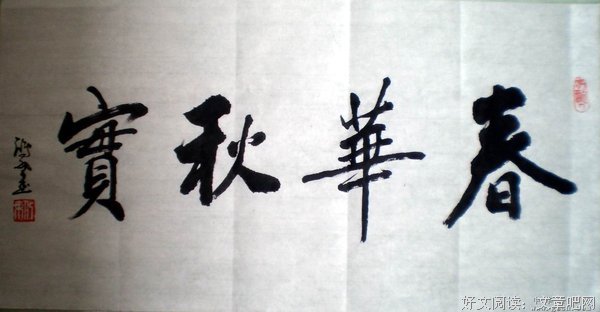 春華秋實
好文阅读：文章吧网